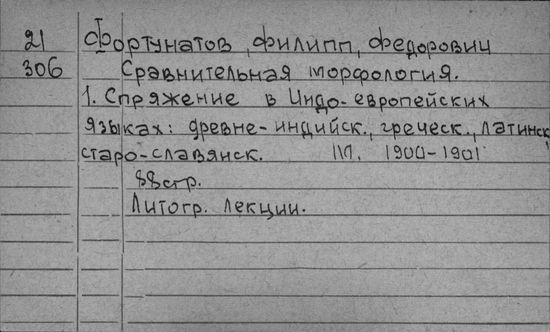 21 Фортунатов, Филипп, Федорович
306 Сравнительная морфология.
1. Спряжение в Индо-европейских
языках: древне-индийск., греческ., латинск
старо-славянск. 1900-1901
88стр.
Литогр. лекции.